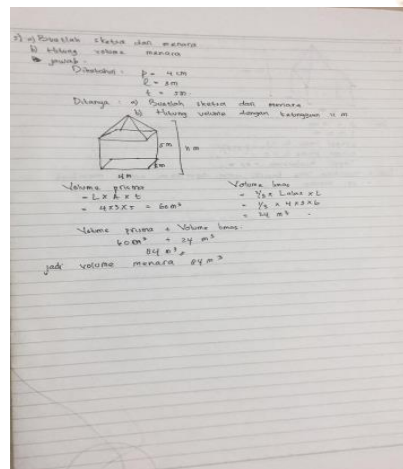 3) a) Buatlah sketsa dari menara
b) Hitung volume menara
Jawab.
Diketahui : p = 4 cm
l = 3m
t = 5m.
Ditanya : a) Buatlah sketsa dari menara
b) Hitung volume dengan ketinggian 11 m
5m
11 m
3m
4m
Volume prisma
= L x A x t
= 4 x 3 x 5 = 60 m³
Volume limas
= 1/3 x Lalas x t
= 1/3 x 4 x 3 x 6
= 24 m³
Volume prisma + Volume limas.
60 m³ + 24 m³
84 m³
jadi volume menara 84 m³